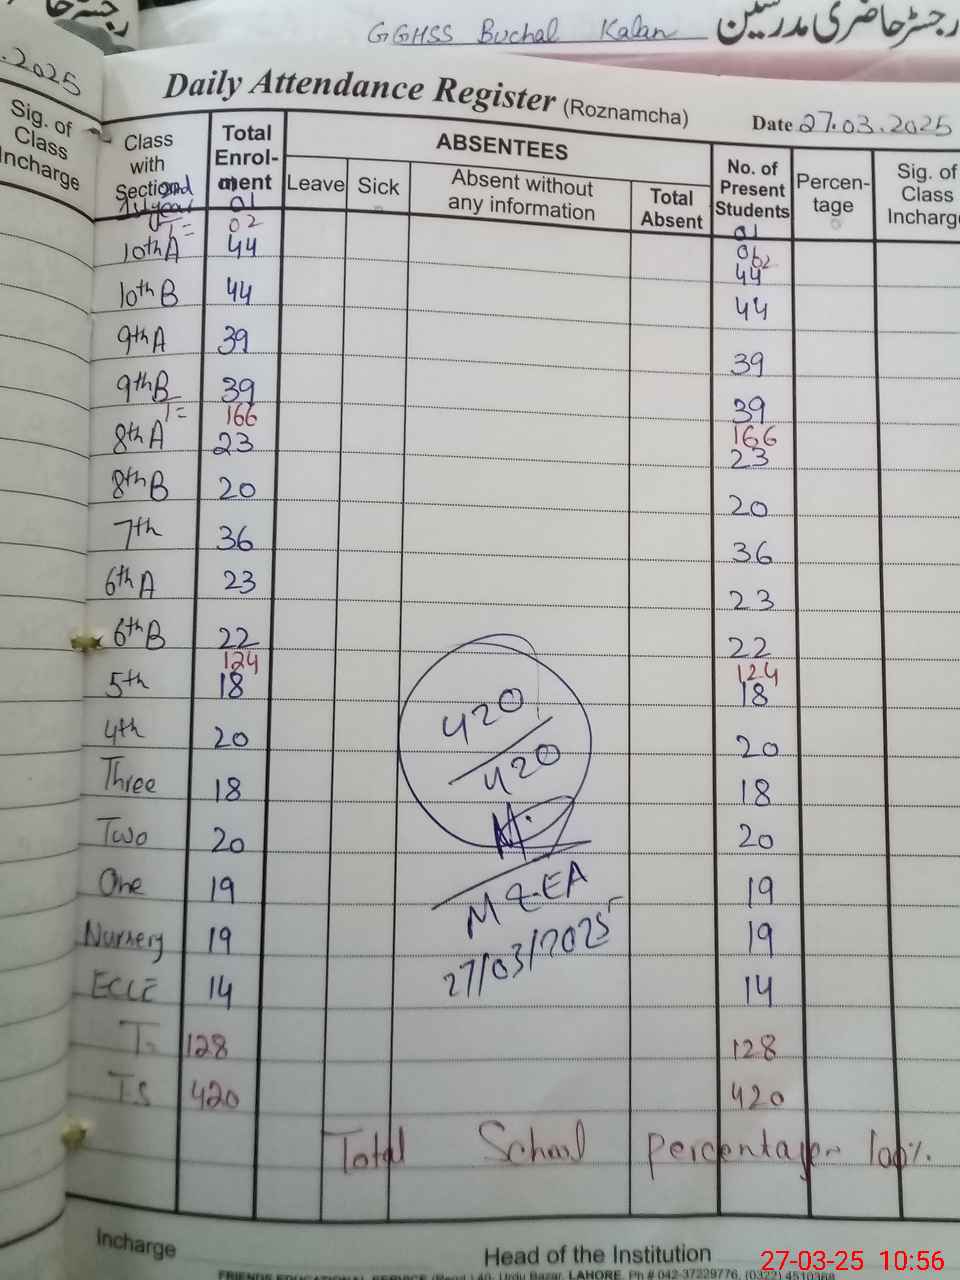 GGHSS Buchal Kalan رجسٹر حاضری مدرسین
.2025
Daily Attendance Register (Roznamcha)
Date 27.03.2025
Sig. of Class Incharge
Class with Section
Total Enrolment
ABSENTEES
Leave
Sick
Absent without any information
Total Absent
No. of Present Students
Percentage
Sig. of Class Incharge
2nd 01 01
1st year
T= 02 02
10th A 44 44
10th B 44 44
9th A 39 39
9th B 39 39
T= 166 166
8th A 23 23
8th B 20 20
7th 36 36
6th A 23 23
6th B 22 22
124 124
5th 18 18
4th 20 20
Three 18 18
Two 20 20
One 19 19
Nursery 19 19
ECCE 14 14
T. 128 128
TS 420 420
420
420
MEA
27/03/2025
Total School Percentage 100%
Incharge
Head of the Institution
27-03-25 10:56
LAHORE. Ph # 042-37229776,